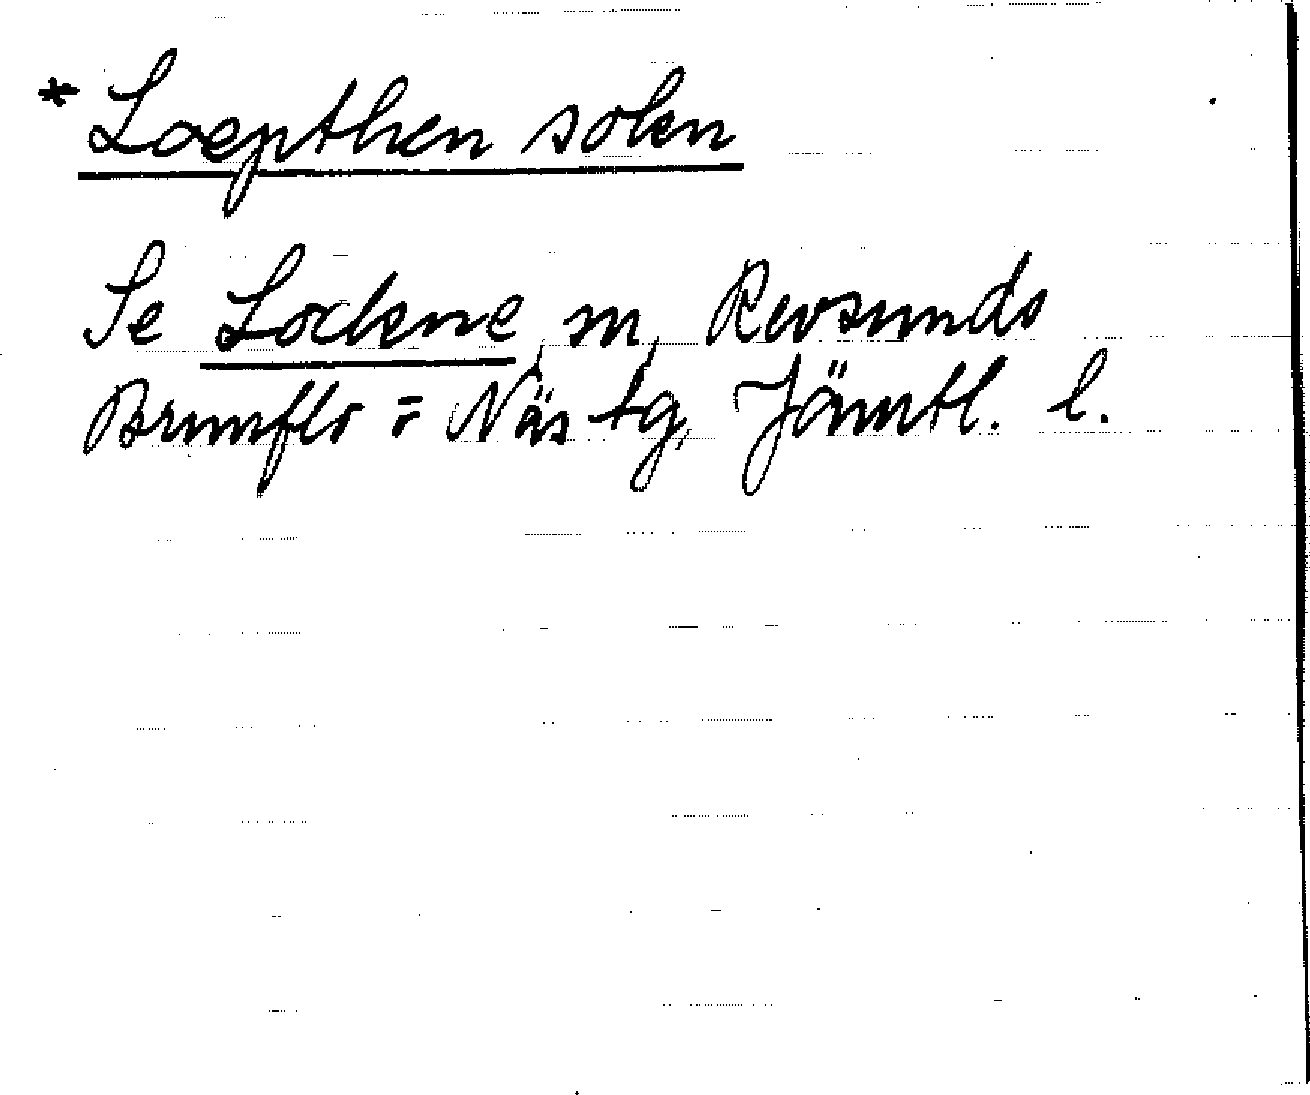 * Loepthen solen
Se Lockene, sn, Revsunds
Brunflo o Näs tg, Jämtl. l.